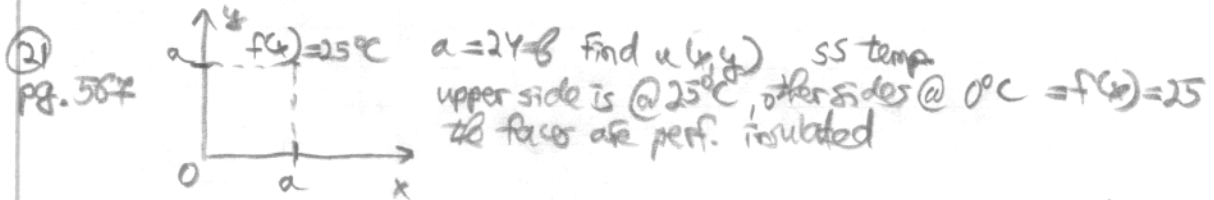 21
pg. 567
y
a
f(x)=25°C
0
a
x
a=24=b Find u(x,y) ss temp.
upper side is @ 25°C, other sides @ 0°C =f(x)=25
the faces are perf. insulated